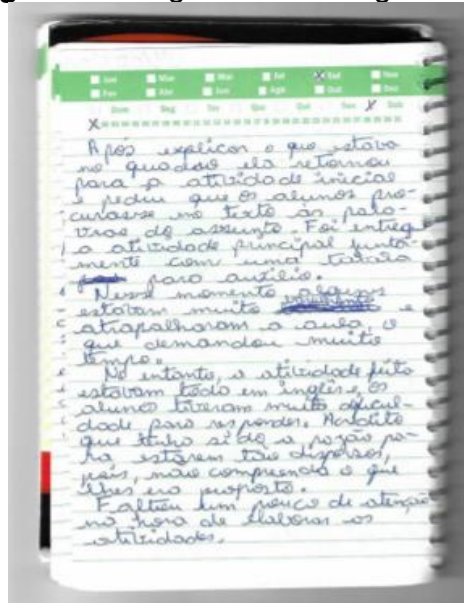 Jan Mar Mai Jul Set Nov
Fev Abr Jun Ago Out Dez
Dom Seg Ter Qua Qui Sex Sab
Após explicar o que estava
no quadro ela retornou
para a atividade inicial
e pediu que os alunos pro-
curasse no texto as pala-
vras do assunto. Foi entregue
a atividade principal junta-
mente com uma
para auxílio.
Nesse momento alguns
estavam muito e
atrapalharam a aula, o
que demandou muito
tempo.
No entanto, a atividade feita
estavam todo em inglês e, os
alunos tiveram muita dificul-
dade para responder. Acredito
que tenha sido a razão pa-
ra estarem tão dispersos,
pois, não compreendia o que
lhes era proposto.
Faltou um pouco de atenção
na hora de elaborar as
atividades.